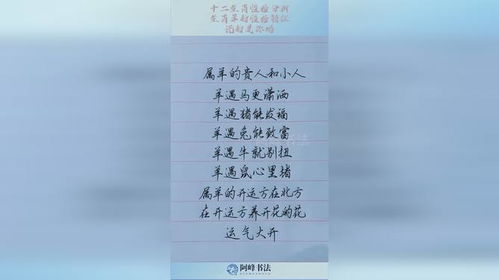 十二生肖性格分析
生肖羊的性格特征
说的是你吗
属羊的贵人和小人
羊遇马更潇洒
羊遇猪能发福
羊遇兔能致富
羊遇牛就别扭
羊遇鼠心里堵
属羊的开运方在北方
在开运方养开花的花
运气大开
阿峰书法